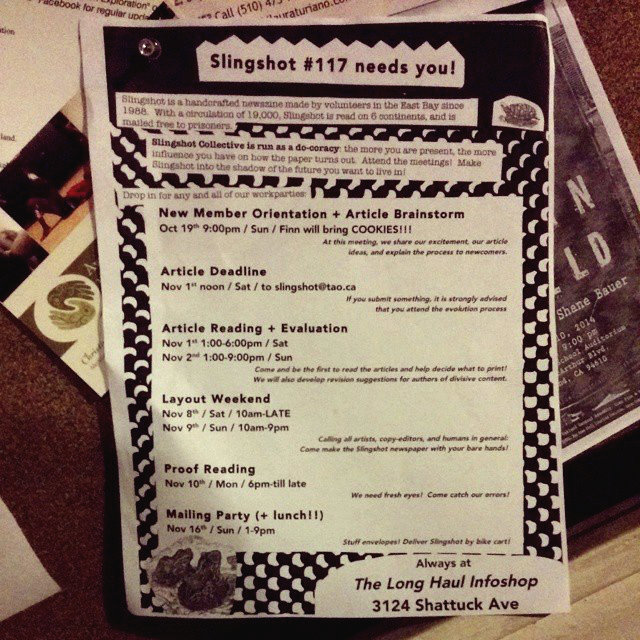 Facebook for regular
Call (510)
Slingshot #117 needs you!
Slingshot is a handcrafted newszine made by volunteers in the East Bay since
1988. With a circulation of 19,000, Slingshot is read on 6 continents, and is
mailed free to prisoners.
Slingshot Collective is run as a do-ocracy: the more you are present, the more
influence you have on how the paper turns out. Attend the meetings! Make
Slingshot into the shadow of the future you want to live in!
Drop in for any and all of our workparties:
New Member Orientation + Article Brainstorm
Oct 19th 9:00pm / Sun / Finn will bring COOKIES!!!
At this meeting, we share our excitement, our article
ideas, and explain the process to newcomers.
Article Deadline
Nov 1st noon / Sat / to slingshot@tao.ca
If you submit something, it is strongly advised
that you attend the evolution process
Article Reading + Evaluation
Nov 1st 1:00-6:00pm / Sat
Nov 2nd 1:00-9:00pm / Sun
Come and be the first to read the articles and help decide what to print!
We will also develop revision suggestions for authors of divisive content.
Layout Weekend
Nov 8th / Sat / 10am-LATE
Nov 9th / Sun / 10am-9pm
Calling all artists, copy-editors, and humans in general:
Come make the Slingshot newspaper with your bare hands!
Proof Reading
Nov 10th / Mon / 6pm-till late
We need fresh eyes! Come catch our errors!
Mailing Party (+ lunch!!)
Nov 16th / Sun / 1-9pm
Stuff envelopes! Deliver Slingshot by bike cart!
Always at
The Long Haul Infoshop
3124 Shattuck Ave
Shane Bauer
2014
9:00 pm
School Auditorium
Arthur Blvd.
CA 94610